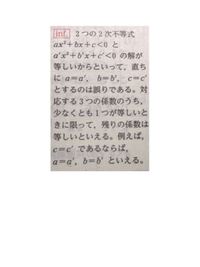 inf. 2つの2次不等式
ax²+bx+c<0 と
a′x²+b′x+c′<0 の解が
等しいからといって，直ち
に a=a′, b=b′, c=c′
とするのは誤りである。対
応する3つの係数のうち，
少なくとも1つが等しいと
きに限って，残りの係数は
等しいといえる。例えば，
c=c′ であるならば，
a=a′, b=b′ といえる。